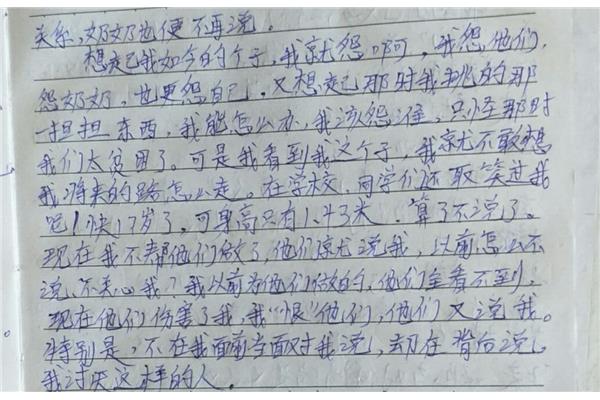 关系,奶奶也便不再说。
想起我如今的个子,我就怨啊,我怨他们,
怨奶奶,也更怨自己。又想起那时我挑的那
一担担东西,我能怎么办,我该怨谁,只怪那时
我们太贫困了。可是我看到我这个子,我就不敢想
我将来的路怎么走。在学校,同学们还取笑过我
呢!快17岁了,可身高只有1.43米,算了不说了。
现在我不帮他们做了,他们就说我,以前怎么不
说、不关心我?我以前为他们做的,他们全看不到,
现在他们伤害了我,我"恨"他们,他们又说我。
特别是,不在我面前当面对我说,却在背后说。
我讨厌这样的人。